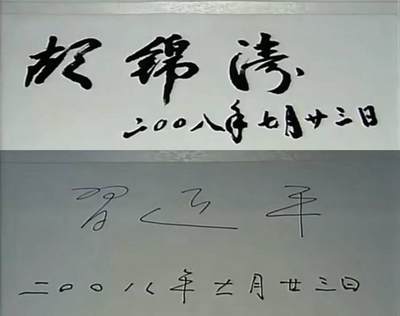 胡錦涛
二〇〇八年七月廿三日
習近平
二〇〇八年十一月廿三日